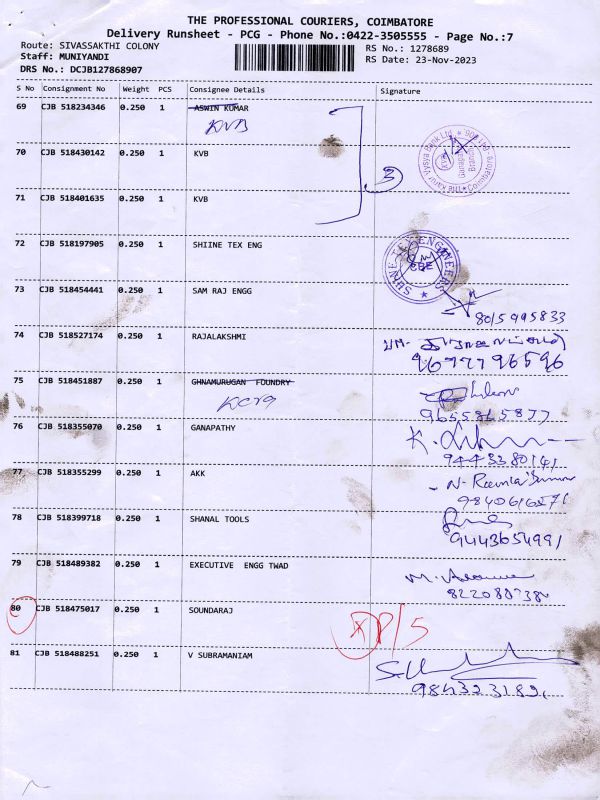 THE PROFESSIONAL COURIERS, COIMBATORE
Delivery Runsheet - PCG - Phone No.:0422-3505555 - Page No.:7
Route: SIVASSAKTHI COLONY
RS No.: 1278689
Staff: MUNIYANDI
RS Date: 23-Nov-2023
DRS No.: DCJB127868907
S No Consignment No Weight PCS Consignee Details Signature
69 CJB 518234346 0.250 1 ASWIN KUMAR
KVB
70 CJB 518430142 0.250 1 KVB
3
71 CJB 518401635 0.250 1 KVB
72 CJB 518197905 0.250 1 SHIINE TEX ENG
73 CJB 518454441 0.250 1 SAM RAJ ENGG
8015995833
74 CJB 518527174 0.250 1 RAJALAKSHMI
9677796596
75 CJB 518451887 0.250 1 GHNAMURUGAN FOUNDRY
9655865877
76 CJB 518355070 0.250 1 GANAPATHY
9443380141
77 CJB 518355299 0.250 1 AKK
9840616271
78 CJB 518399718 0.250 1 SHANAL TOOLS
9443654991
79 CJB 518489382 0.250 1 EXECUTIVE ENGG TWAD
80 CJB 518475017 0.250 1 SOUNDARAJ
P/5
81 CJB 518488251 0.250 1 V SUBRAMANIAM